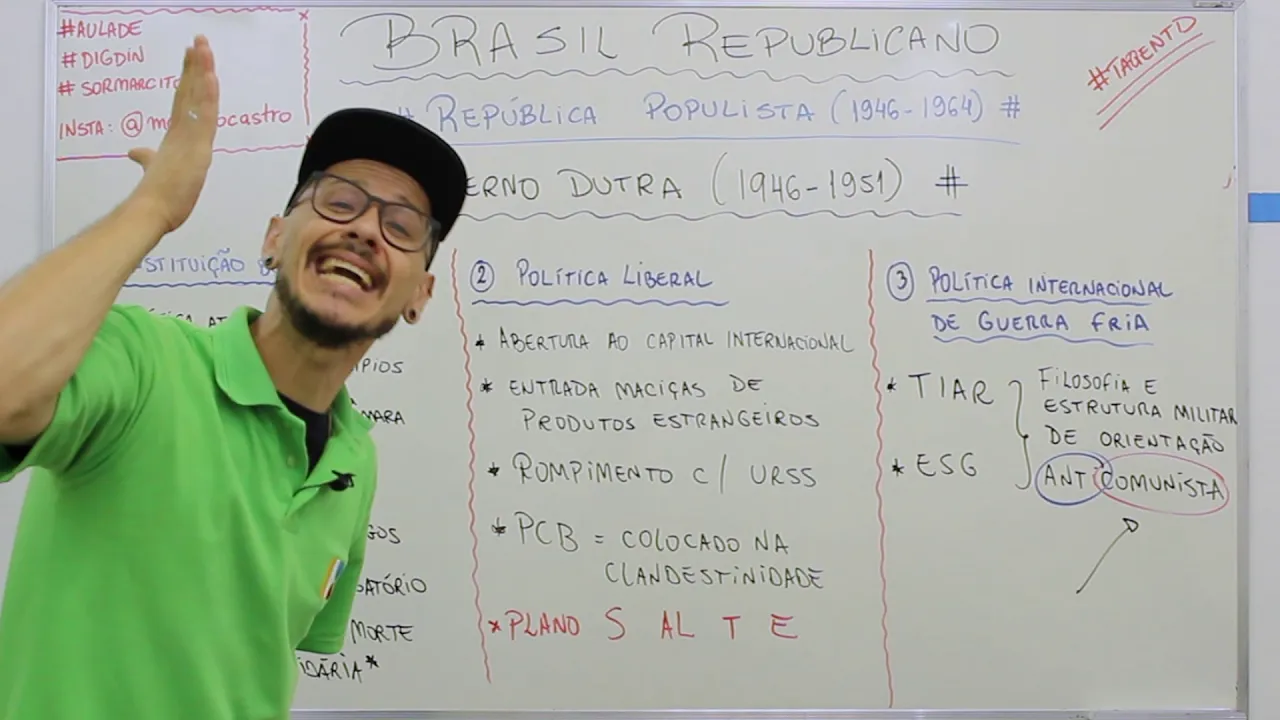 #AULADE
#DIGDIN
# SORMARCITO
INSTA: @m ocastro
BRASIL REPUBLICANO
#TABENTO
# REPÚBLICA POPULISTA (1946-1964) #
ERNO DUTRA (1946-1951) #
STITUIÇÃO
PIOS
MARA
GOS
DATÓRIO
MORTE
IDÁRIA*
2 POLÍTICA LIBERAL
* ABERTURA AO CAPITAL INTERNACIONAL
* ENTRADA MACIÇAS DE
PRODUTOS ESTRANGEIROS
* ROMPIMENTO C/ URSS
* PCB = COLOCADO NA
CLANDESTINIDADE
* PLANO S AL T E
3 POLÍTICA INTERNACIONAL
DE GUERRA FRIA
* TIAR
* ESG
FILOSOFIA E
ESTRUTURA MILITAR
DE ORIENTAÇÃO
ANTICOMUNISTA